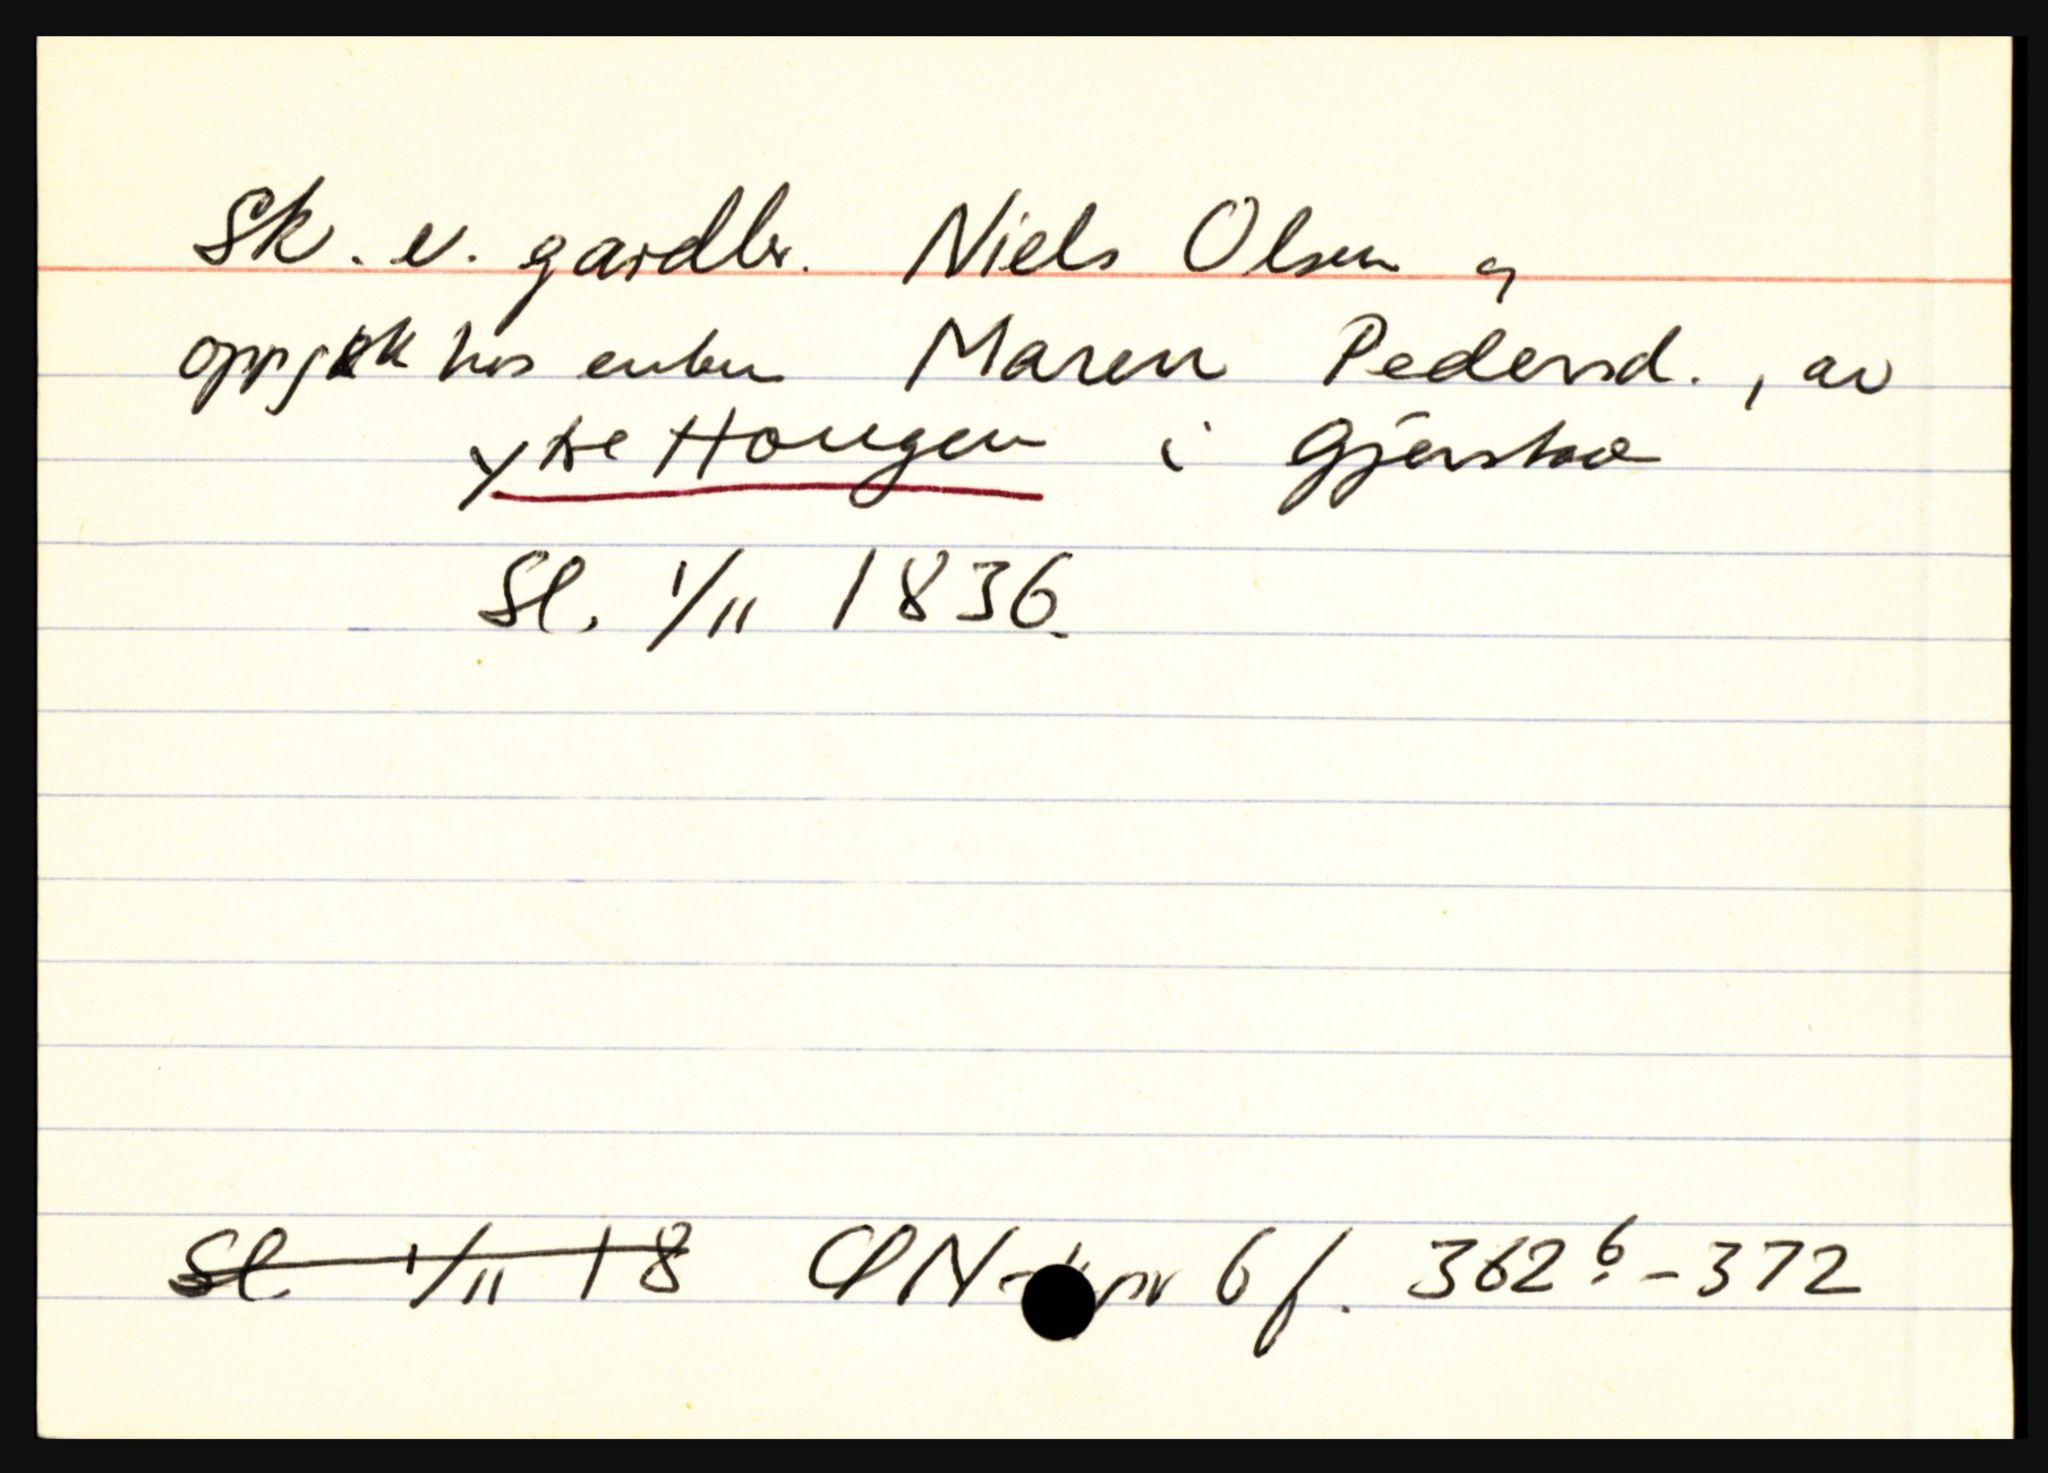 Sk. e. gardbr. Niels Olsen og
oppgjsk hos enken Maren Pedersd., av
ytre Hougen i Gjerstad
Sl. 1/11 1836.
Sl 1/11 18 nr 6 f. 362 b. - 372